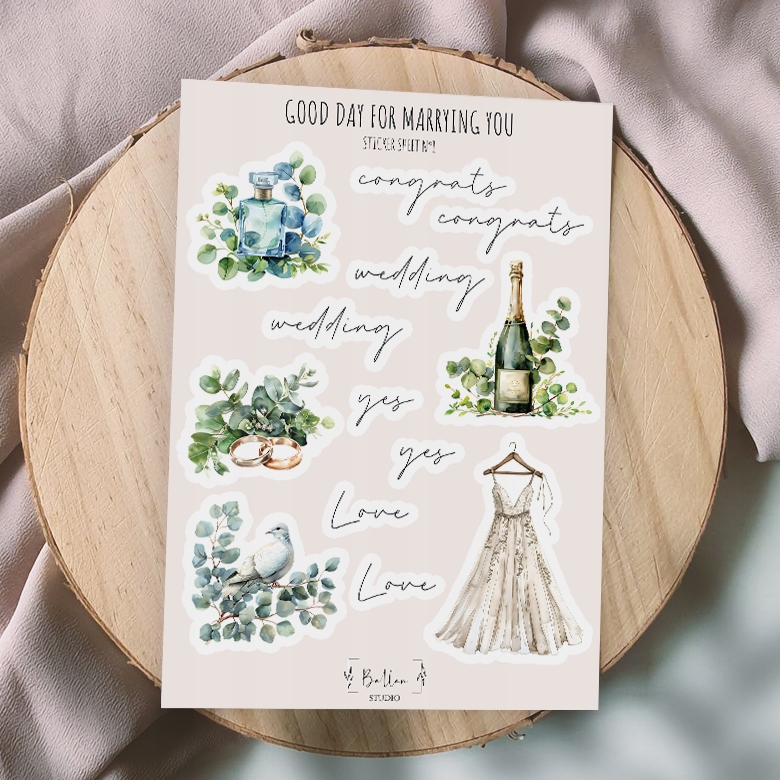 GOOD DAY FOR MARRYING YOU
STICKER SHEET Nº1
congrats
congrats
wedding
wedding
yes
yes
Love
Love
Ballan
STUDIO